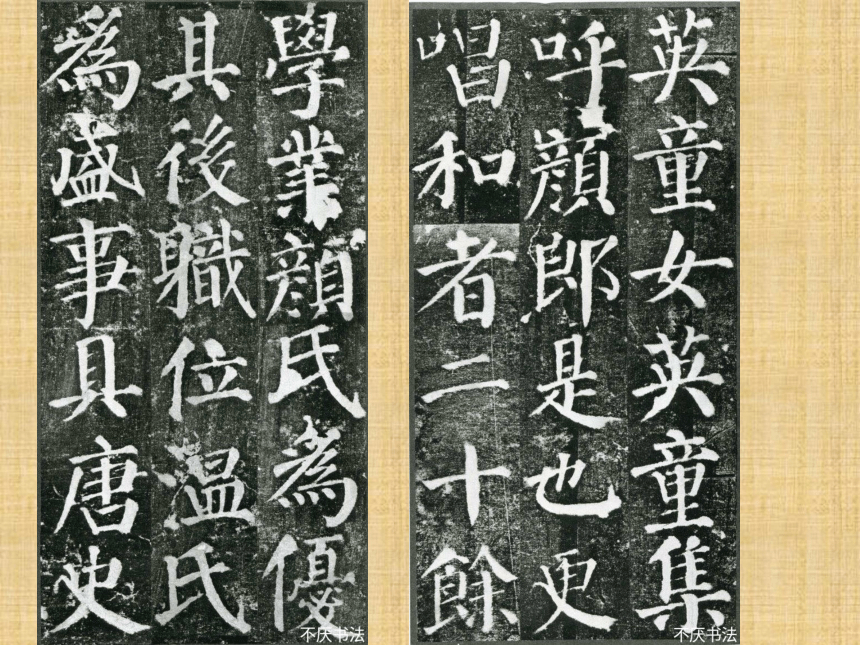 英童女英童集
呼顔郎是也更
唱和者二十餘
學業顔氏為優
其後職位溫氏
為盛事具唐史
不厌书法
不厌书法